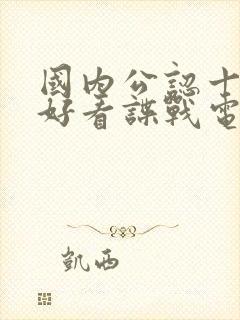 國內公認十
好看諜戰電
凱西